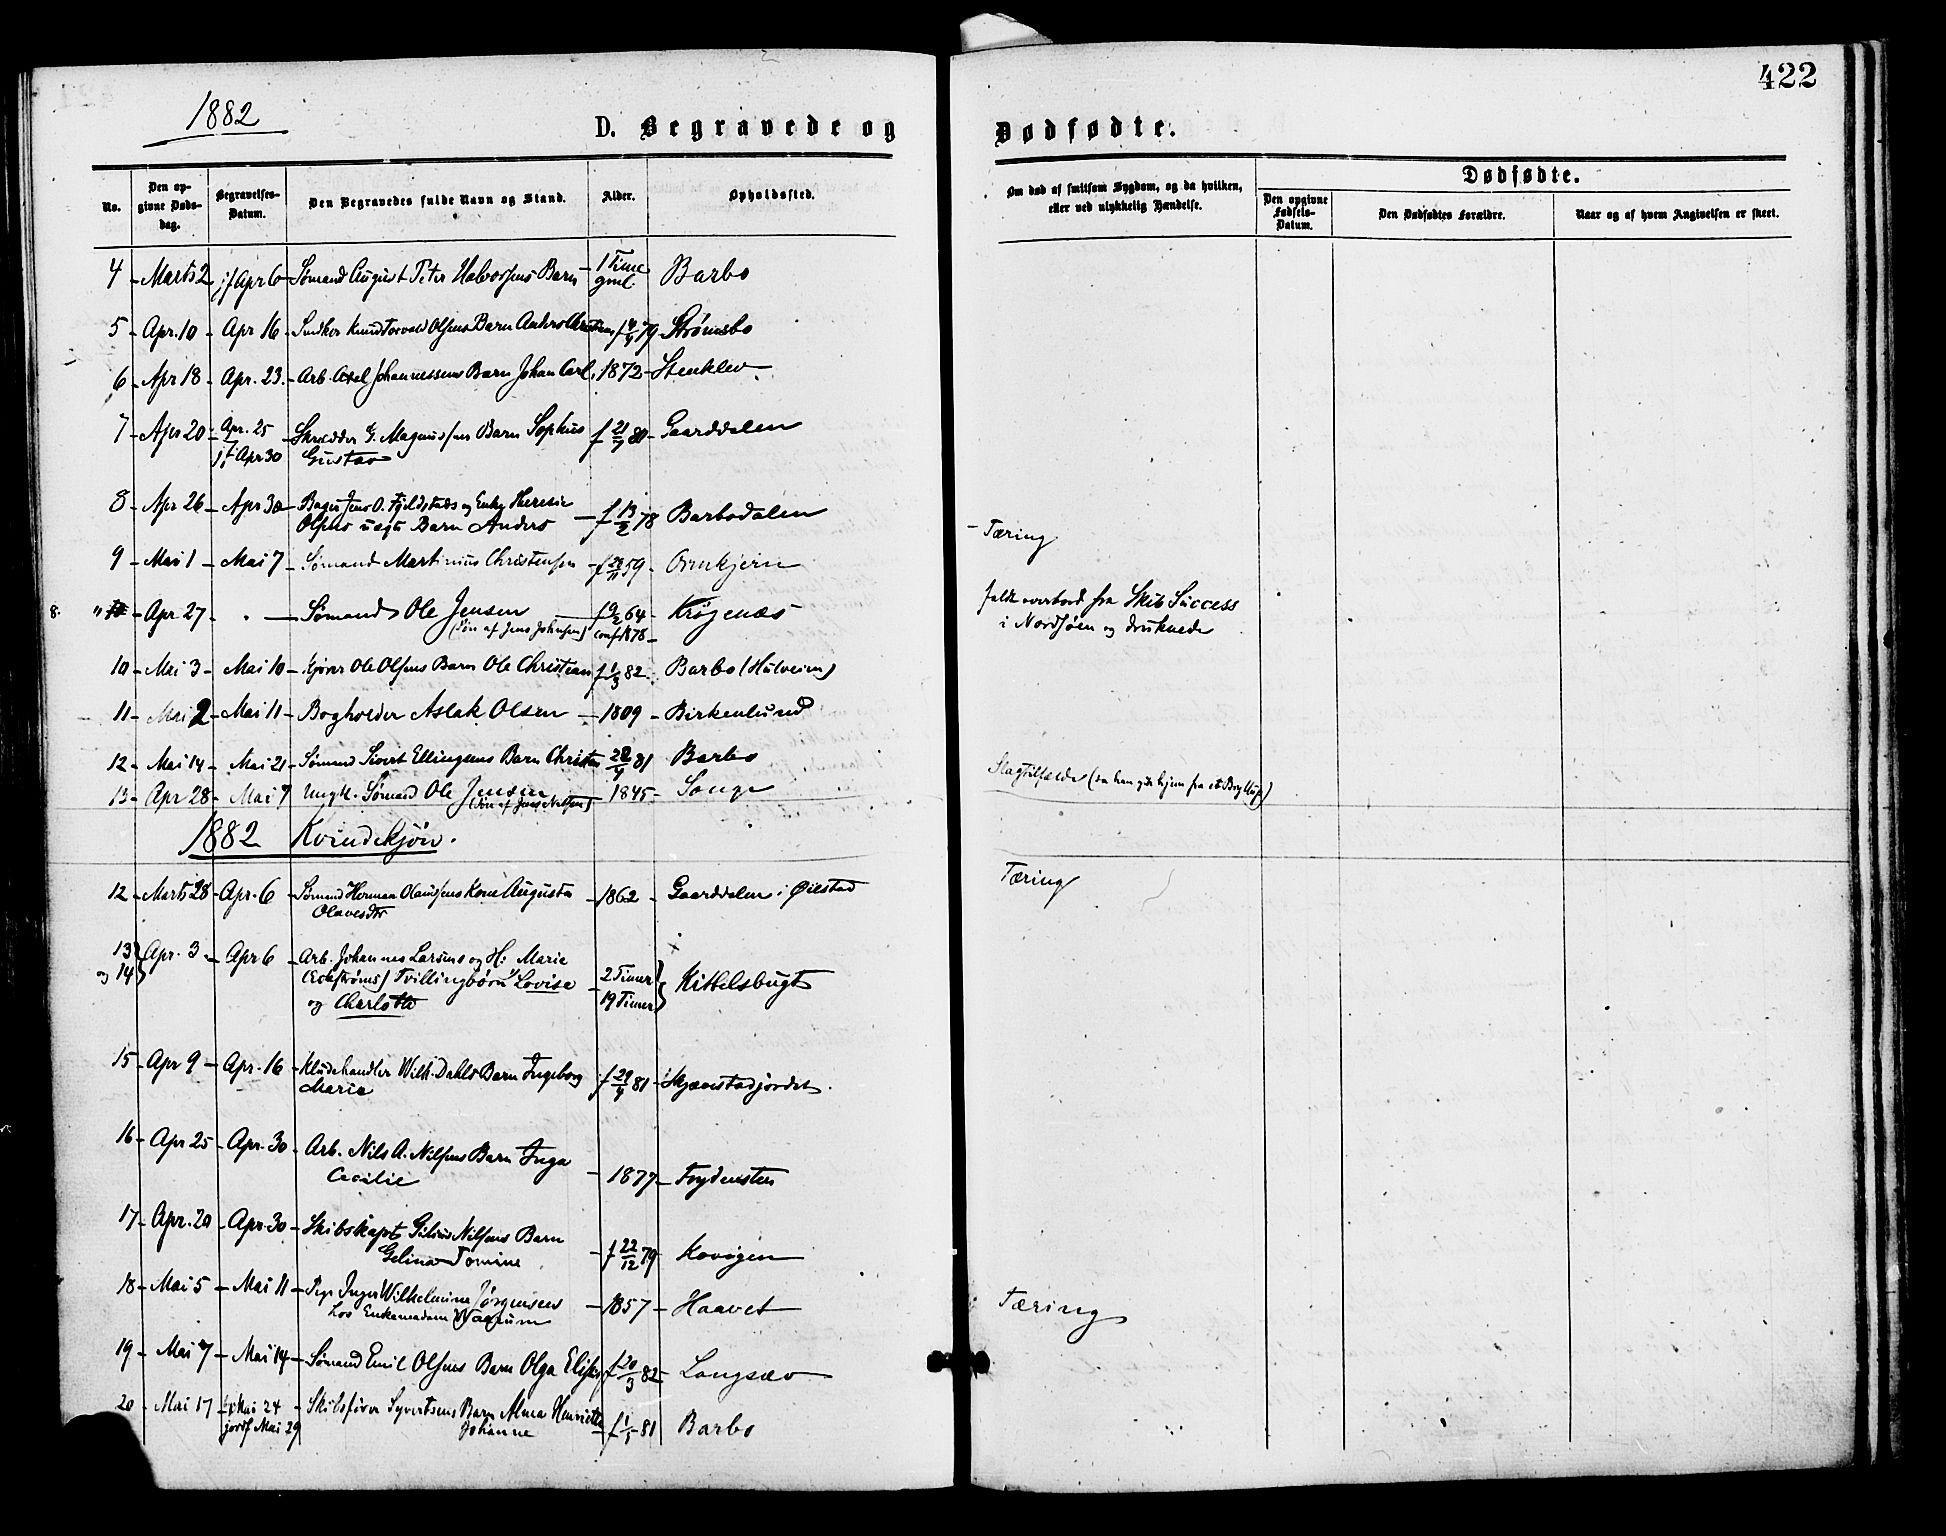 422
1882
D. Begravede og Dødfødte.
No.
Den opgivne Dødsdag.
Begravelses-Datum.
Den Begravedes fulde Navn og Stand.
Alder.
Opholdssted.
Om død af smitsom Sygdom, og da hvilken, eller ved ulykkelig Hændelse.
Dødfødte.
Den opgivne Fødsels-Datum.
Den Dødfødtes Forældre.
Naar og af hvem Angivelsen er skeet.
4 - Marts 2 jf Apr 6 - Sømand August Peter Halvorsens Barn - 1 Time gml. Barbo
5 - Apr. 10 - Apr 16 - Snedker Knud Torvald Olsens Barn Anders Christian f 4/4 79 - Strømsbo
6 - Apr 18 - Apr. 23 - Arb. Axel Johannessens Barn Johan Carl, 1872 - Stenklev
7 - Apr 20 - Apr. 25 - Skrædder G. Magnussens Barn Sophus f 21/7 80 - Gaarddalen
jf Apr 30 Gustav
8 - Apr 26 - Apr 30 - Bager Jens O. Fjeldstads og Enke Theresie
Olsens uegte Barn Anders - f 13/2 78 Barbodalen
- Tæring
9 - Mai 1 - Mai 7 - Sømand Martinius Christensen - f 29/11 59 - Ormkjern
8. " 10 - Apr 27 - . - Sømand Ole Jensen - f 9/2 64 - Krøgenæs
(Søn af Jens Johnsen) conf. 1878 -
faldt overbord fra Skib Success
i Nordsøen og druknede
10 - Mai 3 - Mai 10 - Kjører Ole Olsens Barn Ole Christian f 1/3 82 - Barbo (Hulveien)
11 - Mai 2 - Mai 11 - Bogholder Aslak Olsen - 1809 - Birkenlund
12 - Mai 14 - Mai 21 - Sømand Sivert Ellingsens Barn Christen 28/4 81 Barbo
13 - Apr 28 - Mai 7 Ungk. Sømand Ole Jensen - 1845 - Songe
(Søn af Jens Nilsen)
Slagtilfælde (da han gik hjem fra et Bryllup)
1882 Kvindekjøn.
12 - Marts 28 - Apr. 6 - Sømand Herman Olausens Kone Augusta - 1862 - Gaarddalen i Øiestad
Olavesdtr
Tæring
13 og 14 } Apr. 3 - Apr 6 - Arb. Johannes Larsens og H: Marie
(Eckstrøms) Tvillingbørn Lovise - 2 Timer } Kittelsbugt
og Charlotte 19 Timer
15 - Apr 9 - Apr. 16 - Kludehandler Wilh. Dahls Barn Ingeborg f 29/4 81 - Skjævestadjordet.
Marie
16 - Apr 25 - Apr. 30 - Arb. Nils A. Nilsens Barn Inga
Cecilie - 1877 - Frydensten
17 - Apr. 20 - Apr. 30 - Skibskapt Nilsens Barn
Gelina Tomine - f 22/12 79 Kovigen
18 - Mai 5 - Mai 11 - Pige Inger Wilhelmine Jørgensen - 1857 - Haavet
hos Enkemadam
Tæring
19 - Mai 7 - Mai 14 - Sømand Emil Olsens Barn Olga Elise f 20/3 82 - Langsæv
20 - Mai 17 Mai 24 - Skibsfører Syvertsens Barn Alma Henriette
jordf Mai 29 Johanne - f 1/1 81 Barbo